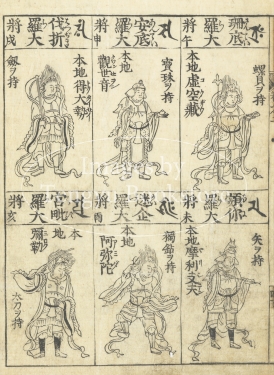 珊底
羅大
將午
螺貝ヲ持
本地虛空藏
安底
羅大
將申
寳珠ヲ持
本地
觀世音
伐折
羅大
將戌
本地得大勢
劔ヲ持
羅大
將未
矢ヲ持
本地摩利支天
迷企
羅大
將酉
獨鈷ヲ持
本地
阿弥陀
宮毗
羅大
將亥
本地
彌勒
太刀ヲ持